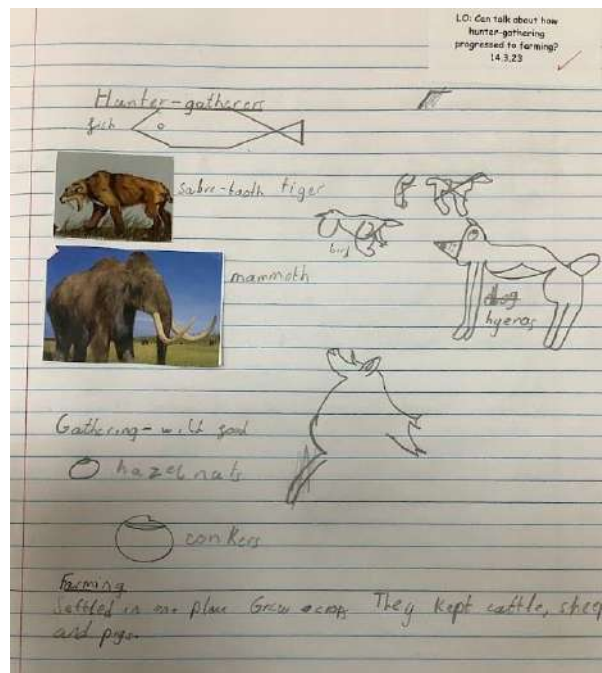 LO: Can talk about how
hunter-gathering
progressed to farming?
14.3.23
Hunter-gatherers
fish
sabre-tooth tiger
mammoth
hyenas
Gathering - wild food
hazelnuts
conkers
Farming
Settled in one place Grow crops They kept cattle, sheep
and pigs.